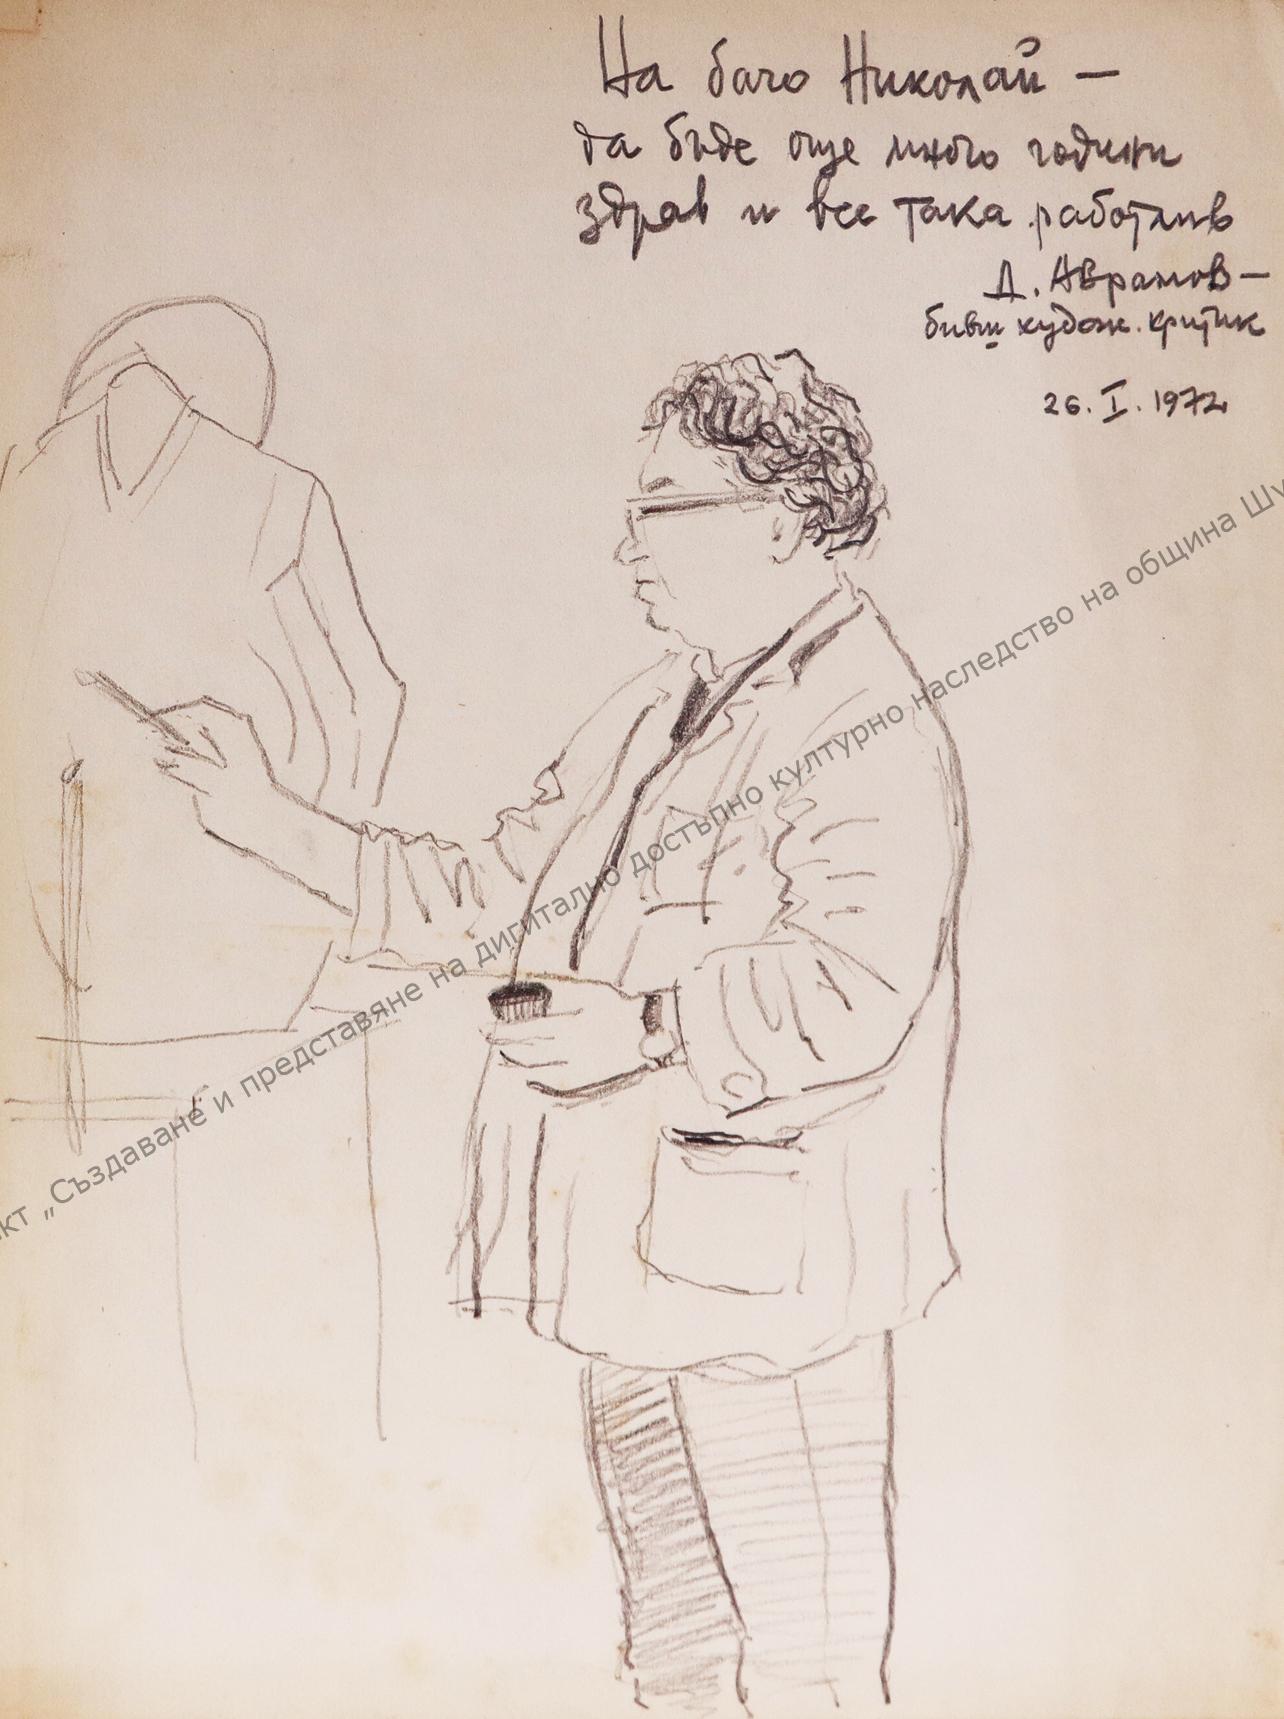 На бачо Николай —
да бъде още много години
здрав и все така работлив
Д. Аврамов —
бивш худож. критик
26. I. 1972
кт „Създаване и представяне на дигитално достъпно културно наследство на община Шу